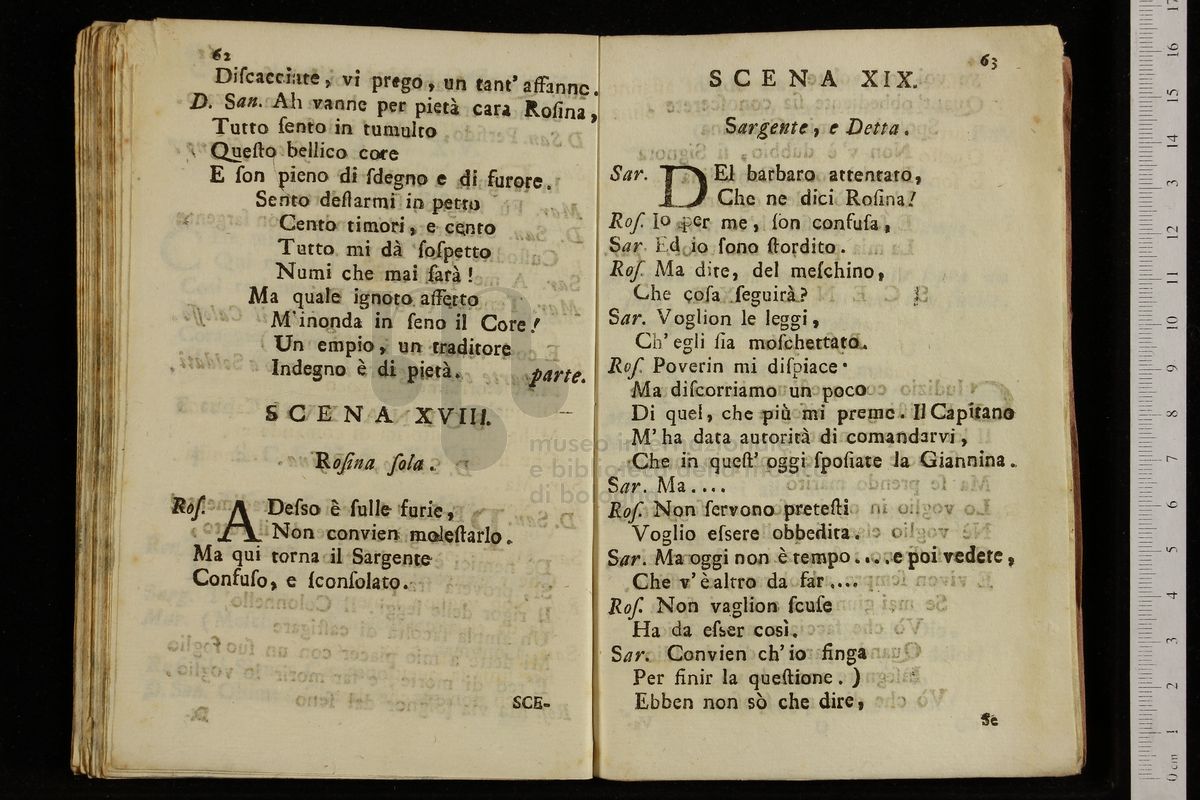 62
Diſcacciate, vi prego, un tant' affanno.
D. San. Ah vanne per pietà cara Roſina,
Tutto ſento in tumulto
Queſto bellico core
E ſon pieno di ſdegno e di furore.
Sento deſtarmi in petto
Cento timori, e cento
Tutto mi dà ſoſpetto
Numi che mai ſarà!
Ma quale ignoto affetto
M'inonda in ſeno il Core!
Un empio, un traditore
Indegno è di pietà. parte.
SCENA XVIII.
Roſina ſola.
Roſ. ADeſso è ſulle furie,
Non convien moleſtarlo.
Ma qui torna il Sargente
Confuſo, e ſconſolato.
SCE-
63
SCENA XIX.
Sargente, e Detta.
Sar. DEl barbaro attentato,
Che ne dici Roſina!
Roſ. Io per me, ſon confuſa,
Sar. Ed io ſono ſtordito.
Roſ. Ma dite, del meſchino,
Che coſa ſeguirà?
Sar. Voglion le leggi,
Ch' egli ſia moſchettato.
Roſ. Poverin mi diſpiace.
Ma diſcorriamo un poco
Di quel, che più mi preme. Il Capitano
M' ha data autorità di comandarvi,
Che in queſt' oggi ſpoſiate la Giannina.
Sar. Ma....
Roſ. Non ſervono preteſti
Voglio eſsere obbedita.
Sar. Ma oggi non è tempo.... e poi vedete,
Che v' è altro da far....
Roſ. Non vaglion ſcuſe
Ha da eſser così.
Sar. Convien ch' io finga
Per finir la queſtione. )
Ebben non sò che dire,
Se
museo internazionale
e biblioteca della musica
di bologna